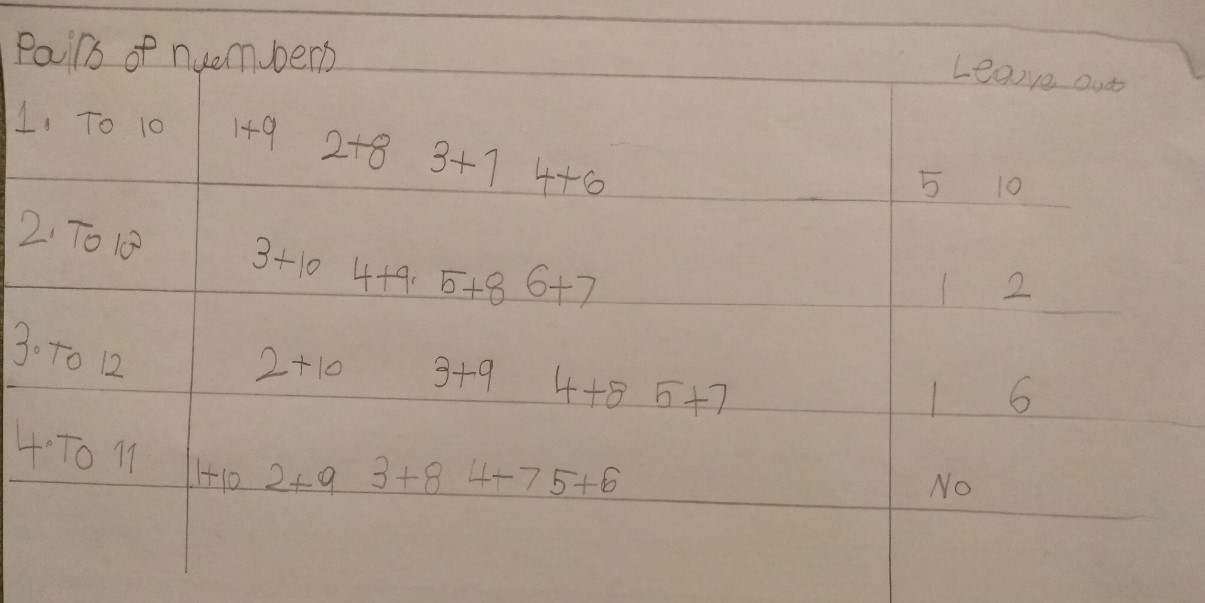 Pairs of nuembers Leave out
1. To 10 1+9 2+8 3+7 4+6 5 10
2. To 13 3+10 4+9. 5+8 6+7 1 2
3. To 12 2+10 3+9 4+8 5+7 1 6
4. To 11 1+10 2+9 3+8 4+7 5+6 No